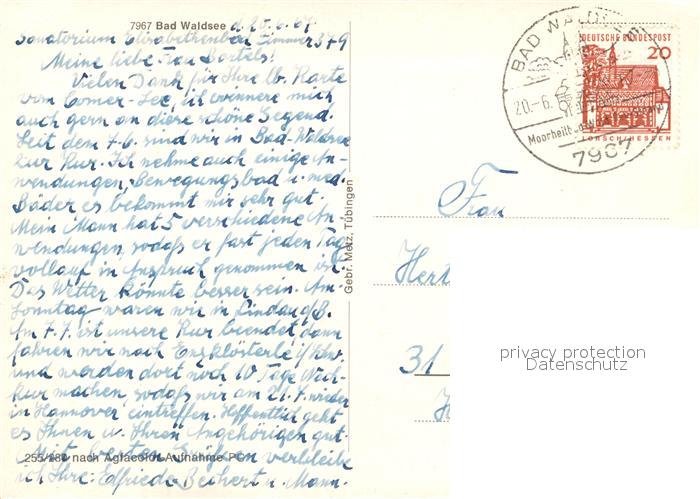 7967 Bad Waldsee d. 20.6.67
Sanatorium Elisabethenbad Zimmer 349
Meine liebe Frau Bartels!
Vielen Dank für Ihre lb. Karte
vom Comer-See, ich erinnere mich
auch gern an diese schöne Gegend.
Seit dem 7.6. sind wir in Bad-Waldsee
zur Kur. Ich nehme auch einige An-
wendungen, Bewegungsbad u. med.
Bäder es bekommt mir sehr gut.
Mein Mann hat 5 verschiedene An
wendungen, sodaß er fast jeden Tag
vollauf in Anspruch genommen ist.
Das Wetter könnte besser sein. Am
Sonntag waren wir in Lindau a/B.
Am 7.7. ist unsere Kur beendet, dann
fahren wir nach Enzklösterle i/Schw.
und werden dort noch 10 Tage Nach-
kur machen, sodaß wir am 21.7. wieder
in Hannover eintreffen. Hoffentlich geht
es Ihnen u. Ihren Angehörigen gut.
Mit besten Grüßen verbleibe
255/282 nach Agfacolor-Aufnahme PC
ich Ihre: Elfriede Bechert u. Mann.
Gebr. Metz, Tübingen
BAD WALDSEE
20.-6.
Moorheilbad
7967
DEUTSCHE BUNDESPOST
20
LORSCH/HESSEN
Frau
31
privacy protection
Datenschutz